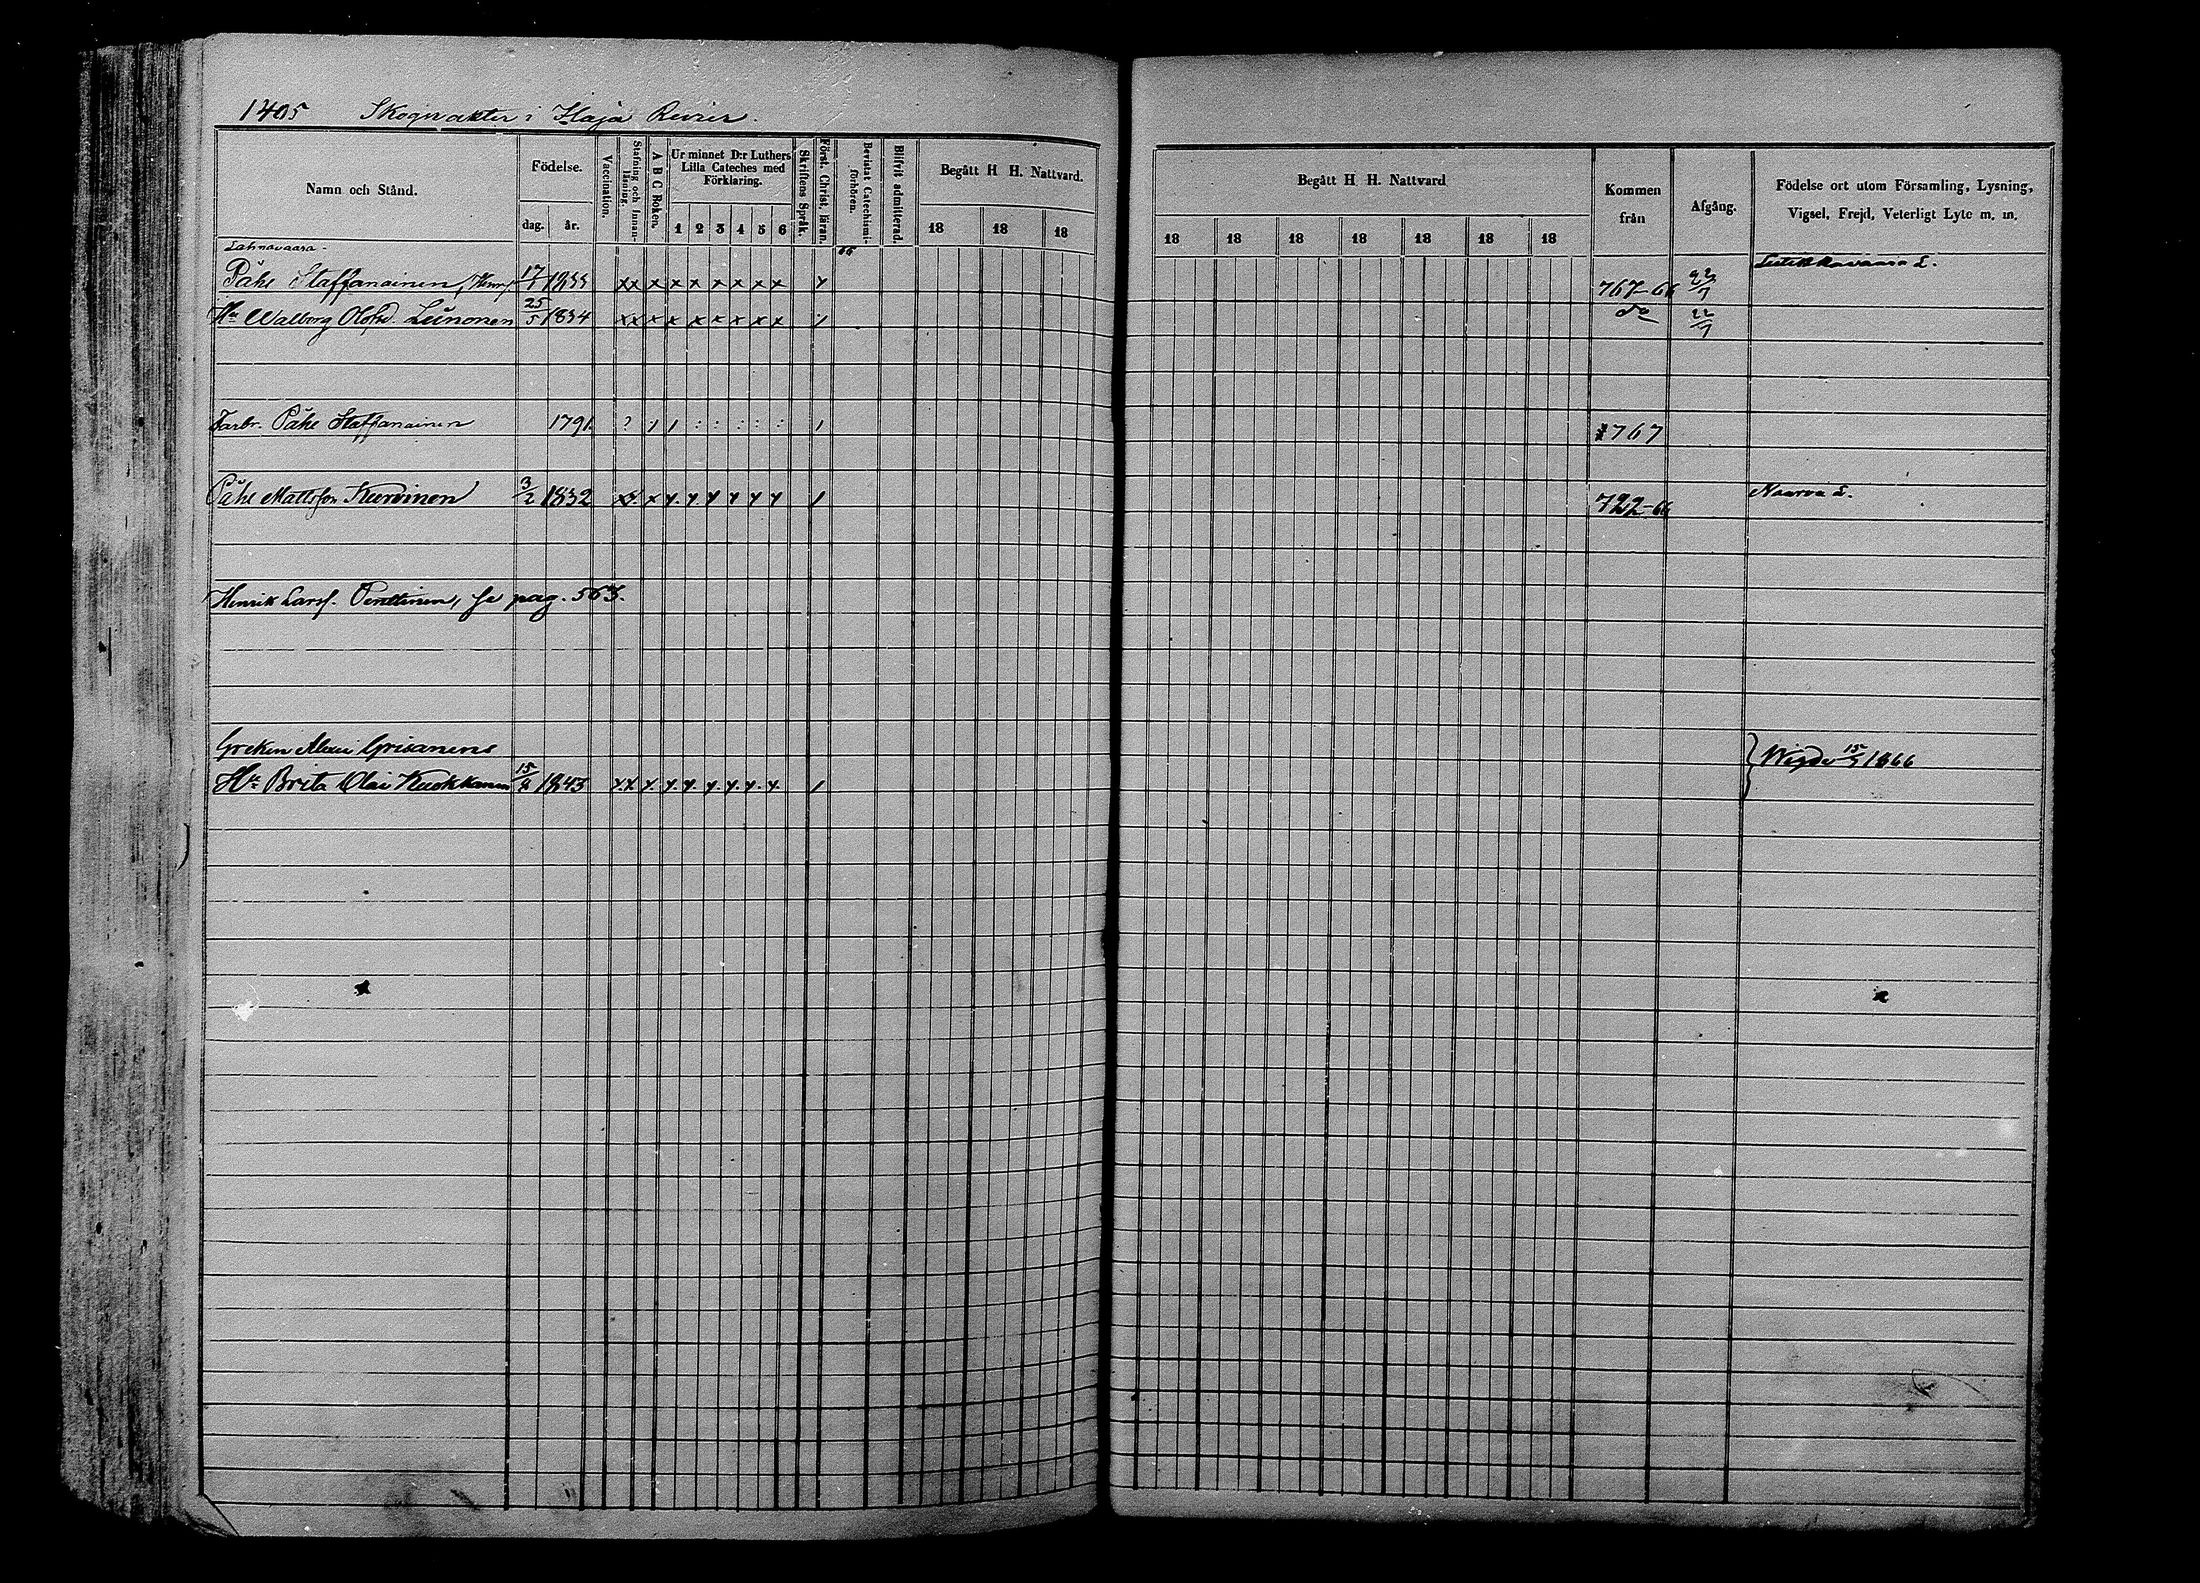 1405 Skogvakter i Haja Revier.
Namn och Stånd.
Födelse.
dag. år.
Vaccination.
Stafning och Innan-läsning.
A B C Boken.
Ur minnet D:r Luthers
Lilla Cateches med
Förklaring.
1 2 3 4 5 6
Skriftens Språk.
Först. Christ. läran.
Bevistat Catechismi-förhören.
Blifvit admitterad.
Begått H H. Nattvard.
18 18 18
Begått H H. Nattvard
18 18 18 18 18 18 18
Kommen
från
Afgång.
Födelse ort utom Församling, Lysning,
Vigsel, Frejd, Veterligt Lyte m. m.
Lahnavaara
66
Påhl Staffanainen, 17/1 1833 xx x x x x x x x 767-66 22/7
Hu Walborg Olofsd. Leinonen 25/5 1834 xx x x x x x x x do 22/7
Farbr. Påhl Staffanainen 1791 767
Påhl Mattsson Kurvinen 3/2 1832 722-66 Naarva
Henrik Larss. Penttinen, se pag. 563.
Greken Alexei Grisanens
Hu Brita Olai Kuokkanen 15 1843 Vigde 15 1866